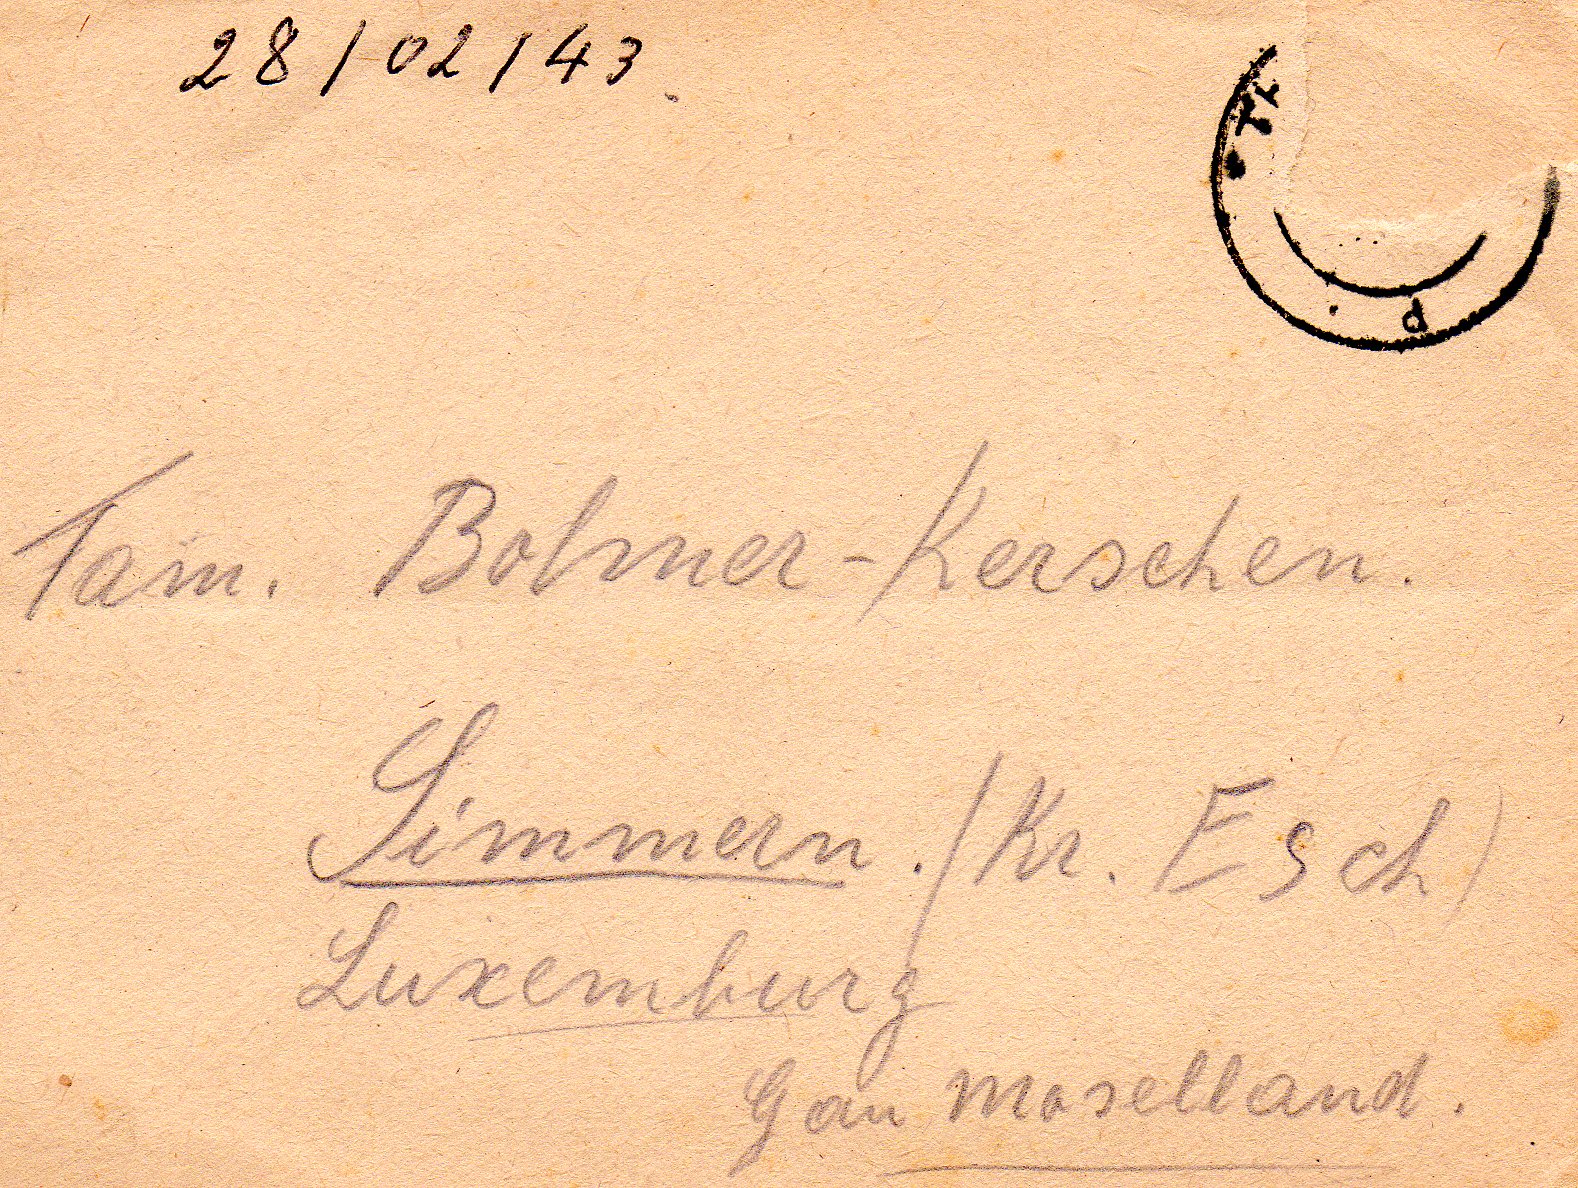 28/02/43
Fam. Bolmer-Kerschen.
Simmern. (Kr. Esch)
Luxemburg
Gau Moselland.